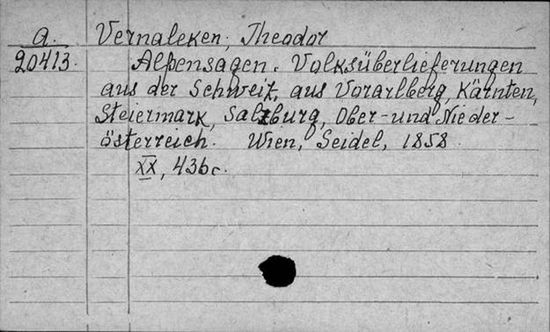 a. Vernaleken, Theodor
20413. Alpensagen. Volksüberlieferungen
aus der Schweit, aus Vorarlberg, Kärnten,
Steiermark, Salzburg, Ober- und Nieder-
österreich. Wien, Seidel, 1858.
XX, 436 c.